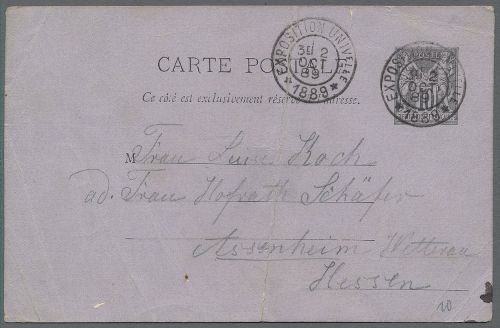 CARTE POSTALE
EXPOSITION UNIVELLE
3E 2
OCT
89
1889
EXPOSITION UNIVELLE
3E 2
OCT
89
1889
Ce côté est exclusivement réservé à l'adresse.
M Frau Luise Koch
ad. Frau Hofrath Schäfer
Assenheim Wetterau
Hessen
10